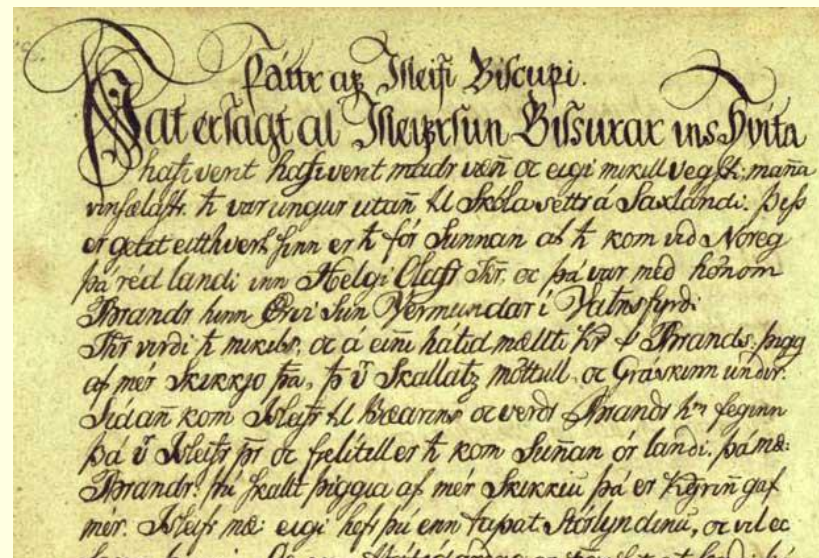 Þáttr af Isleifi Biscupi.
Þat er sagt at Isleifr sun Gissurar ins Hvita
hafi vent hafi vent madr væñ oc eigi mikill vegſk: mañā
vinſælaſtr. ħ var ungur utañ til Skóla settr á Saxlandi. Þeſs
er getit eitthvert ſinn er ħ fór Sunnan at ħ kom vid Noreg
þá réd landi inn Helgi Olafr oc þá var med hönom
Brandr hinn Ørvi Sun Vermundar i Vatnsfyrdi.
virdi ħ mikils, oc á eiñi hátid mællti Brands: þigg
af mér Skikkjo þā, Skallatz möttull, oc Gráskinn undir.
Sidañ kom Isleifr til Bæarins oc verdr Brandr feginn
þá Isleifr oc félitill er ħ kom Suñan ór landi. þá mæ:
Brandr: þú ſkallt þiggia af mér Skikkiu þá er gaf
mér. Isleifr mæ: eigi hefr þú enn tapat Stórlyndinu, oc vil ec